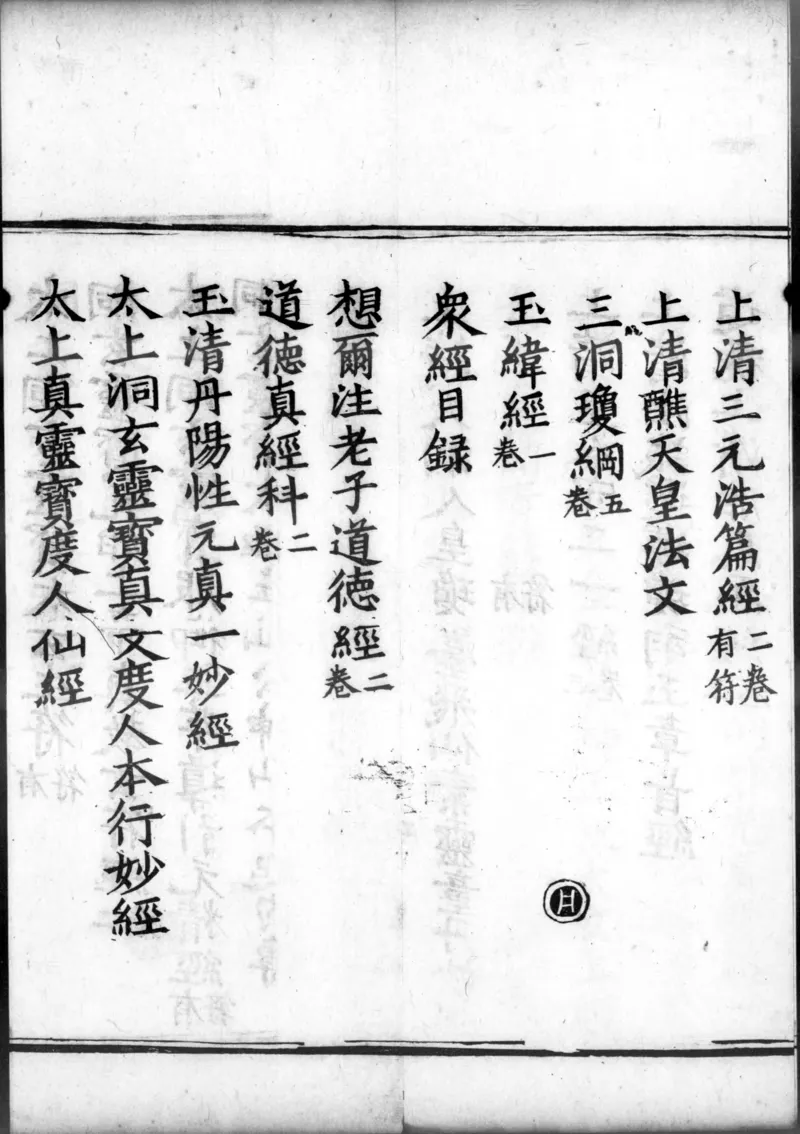 上清三元浩篇經二卷有符
上清醮天皇法文
三洞瓊綱五卷
玉緯經一卷
衆經目録
想爾注老子道德經二卷
道德真經科二卷
玉清丹陽性元真一妙經
太上洞玄靈寶真文度人本行妙經
太上真靈寶度人仙經